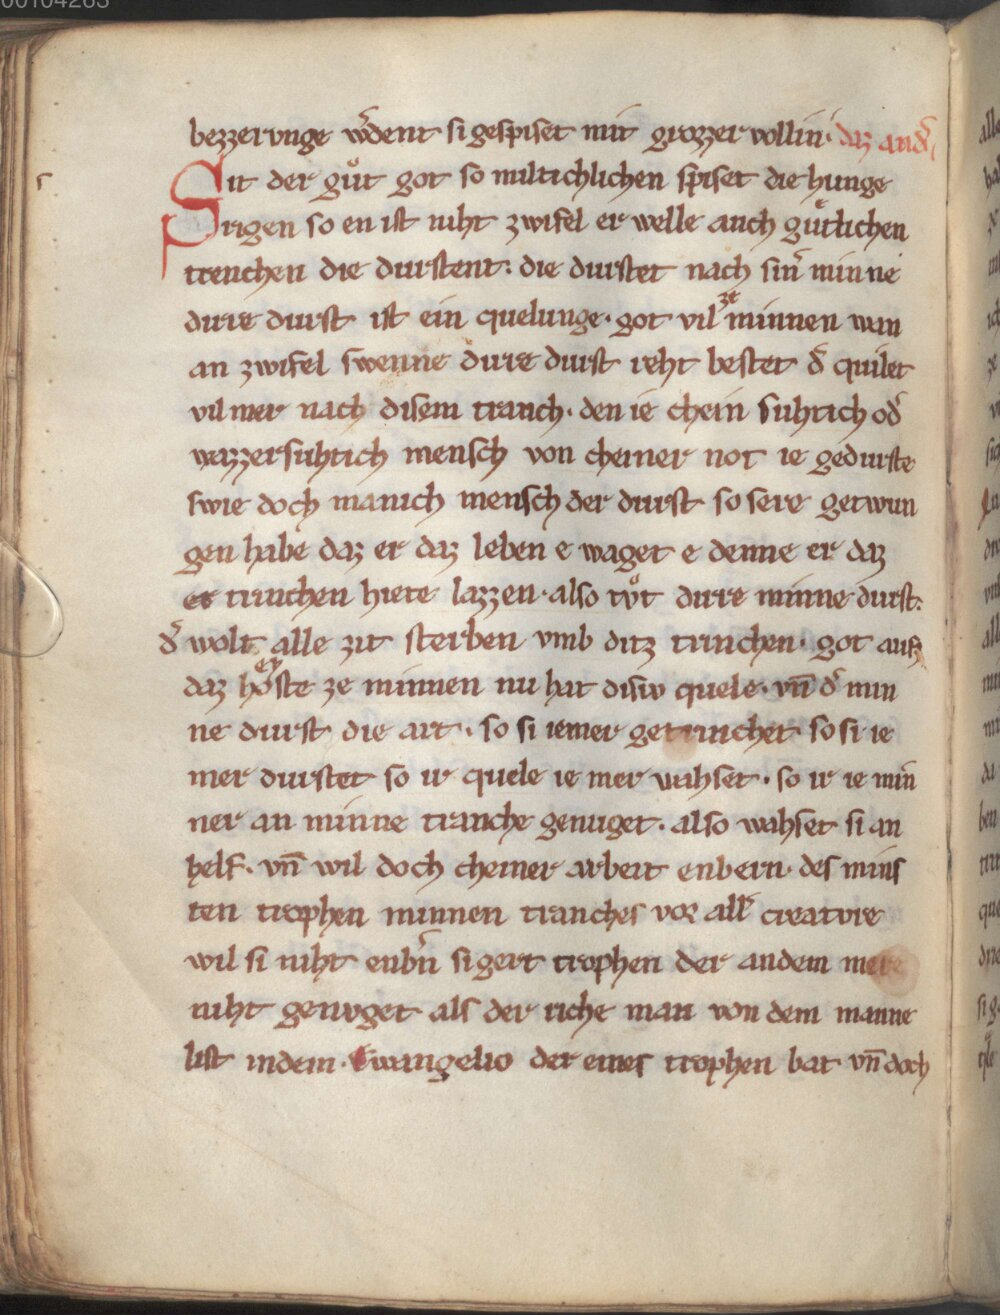 00104263
bezzervnge w̄dent si gespiset mit grozzer vollin. daz and̄
Sit der gůt got so miltichlichen spiset die hunge
rigen so en ist niht zwifel er welle auch gůtlichen
trenchen die durstent. die durstet nach sin̄ minne
dirre durst ist ein quelunge. got vil ze minnen wan
an zwifel swenne dirre durst reht bestet d̄ quilet
vil mer nach disem tranch. den ie chein suhtich od̄
wazzersuhtich mensch von cheiner not ie gedurste
swie doch manich mensch der durst so sere getwun
gen habe daz er daz leben e waget e denne er daz
er trinchen hiete lazzen. also tůt dirre minne durst.
d̄ wolt alle zit sterben vmb ditz trinchen. got aufz
daz hoeste ze minnen nu hat disiv quele. vn̄ d̄ min
ne durst die art. so si iemer getrinchet so si ie
mer durstet so ir quele ie mer wahset. so ir ie min̄
ner an minne tranche genuget. also wahset si an
helf. vn̄ wil doch cheiner arbeit enbern. des mins
ten trophen minnen tranches vor all̄ creatvre
wil si niht enbn̄ si gert trophen der andem mere
niht genvget als der riche man von dem manne
list indem. Ewangelio der eines trophen bat vn̄ doch